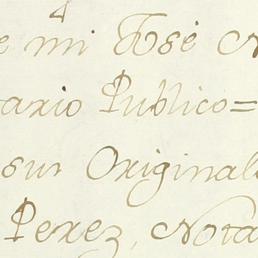 e mi José N
tario Publico=
sus Original
Perez, Nota